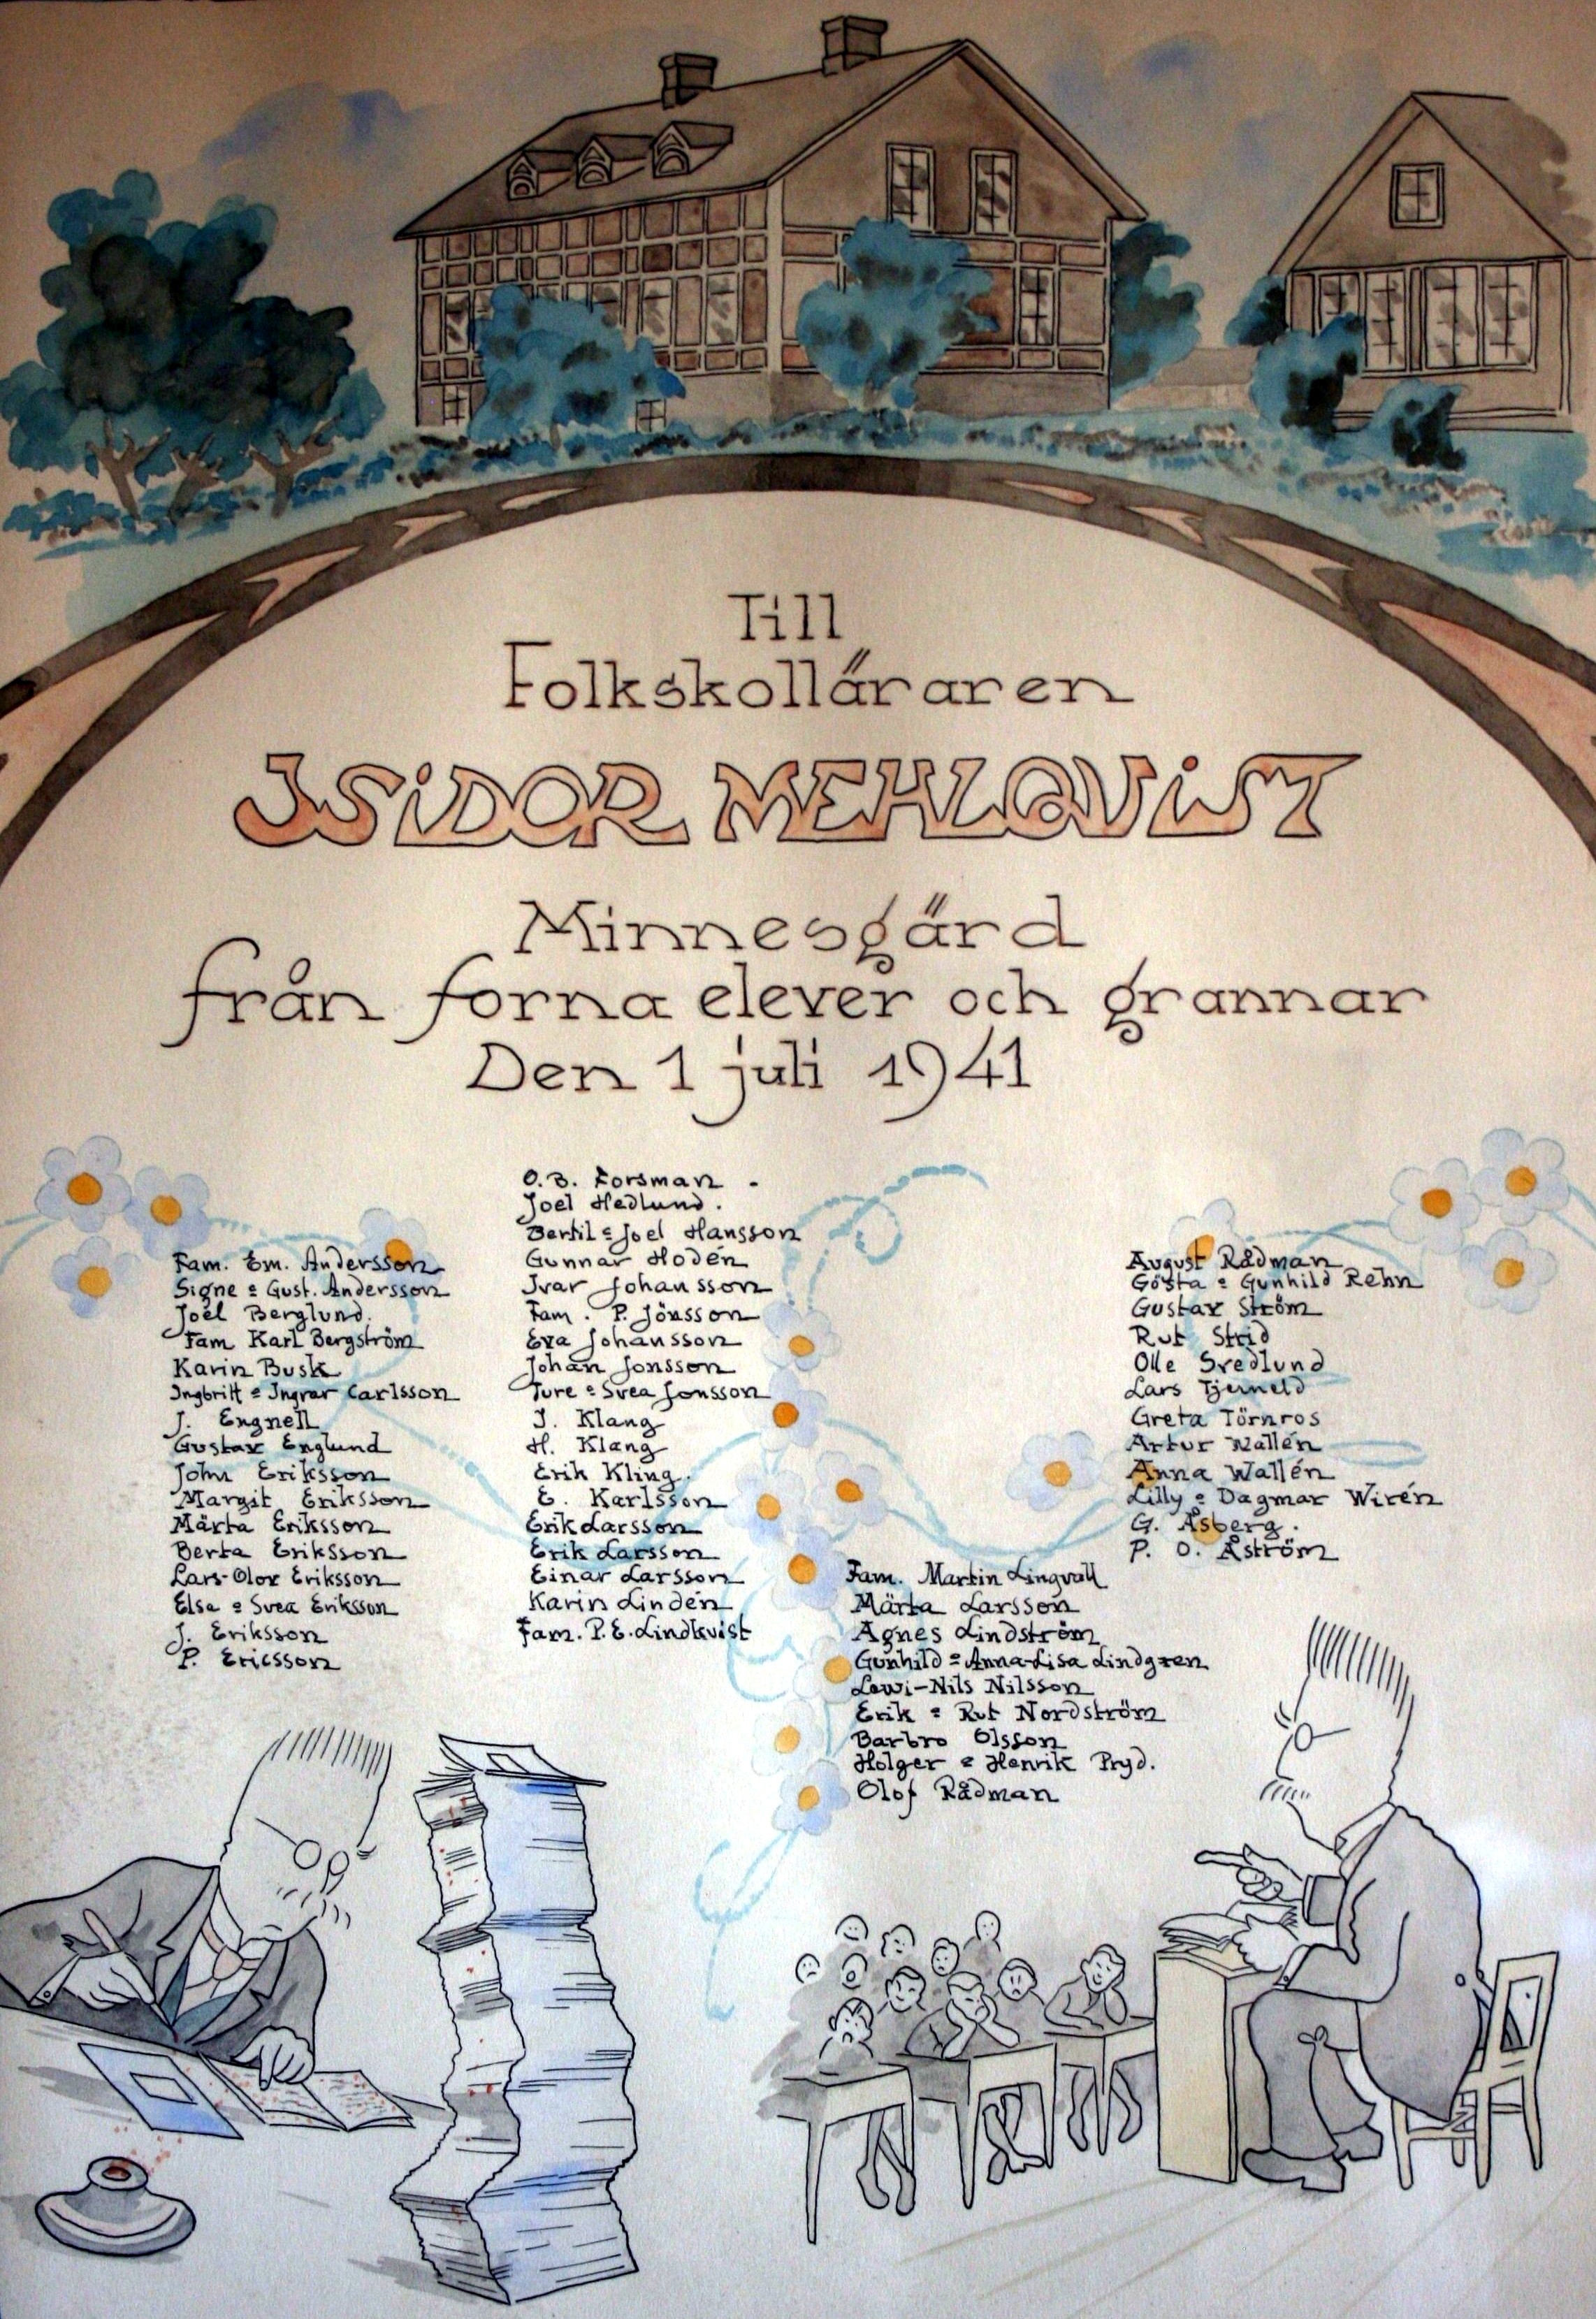 Till
Folkskolläraren
JSiDOR MEHLQViST
Minnesgärd
från forna elever och grannar
Den 1 juli 1941
Fam. Em. Andersson
Signe & Gust. Andersson
Joël Berglund.
Fam Karl Bergström
Karin Busk
Ingbritt & Ingvar Carlsson
J. Engnell
Gustav Englund
John Eriksson
Margit Eriksson
Märta Eriksson
Berta Eriksson
Lars-Olov Eriksson
Elsa & Svea Eriksson
J. Eriksson
P. Ericsson
O.B. Forsman
Joel Hedlund.
Bertil & Joel Hansson
Gunnar Hodén
Ivar Johansson
Fam. P. Jönsson
Eva Johansson
Johan Jonsson
Ture & Svea Jonsson
J. Klang
H. Klang
Erik Kling.
E. Karlsson
Erik Larsson
Erik Larsson
Einar Larsson
Karin Lindén
Fam. P.E. Lindkvist
Fam. Martin Lingvall
Märta Larsson
Agnes Lindström
Gunhild & Anna-Lisa Lindgren
Lewi-Nils Nilsson
Erik & Rut Nordström
Barbro Olsson
Holger & Henrik Pryd.
Olof Rådman
August Rådman
Gösta & Gunhild Rehn
Gustav Ström
Rut Strid
Olle Svedlund
Lars Tjerneld
Greta Törnros
Artur Wallén
Anna Wallén
Lilly & Dagmar Wirén
G. Åsberg.
P. O. Åström